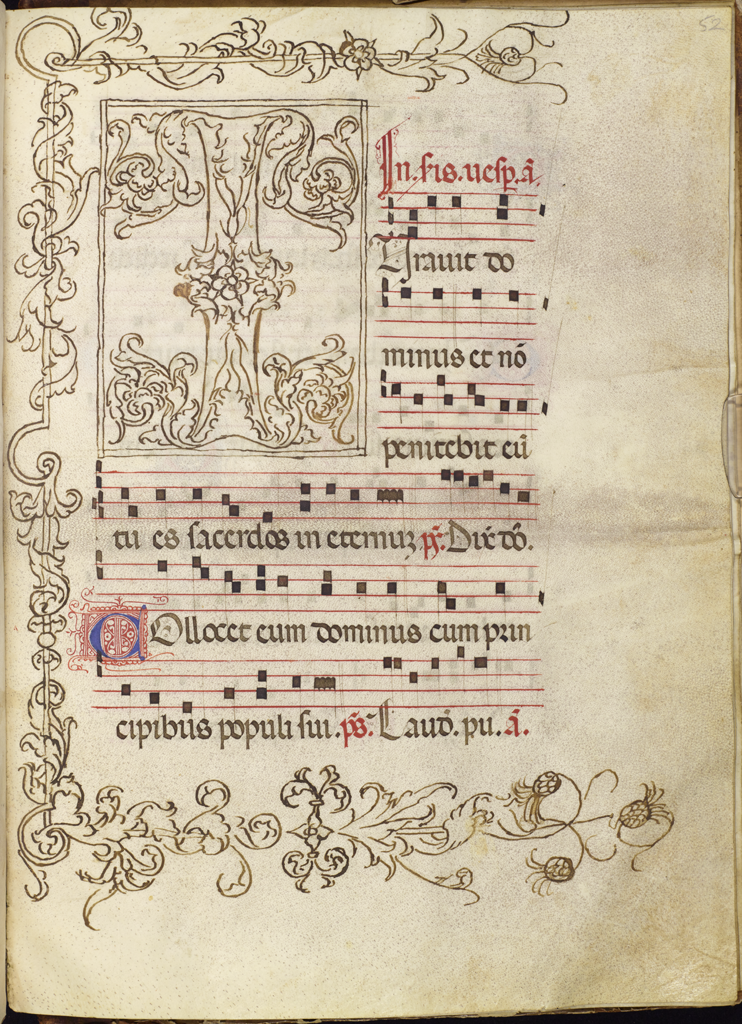 52
In. s̄is. uesp. ā.
Iurauit do
minus et nō
penitebit eū
tu es sacerdos in eternuz p̄s. Dix̄. dō.
COllocet eum dominus cum prin
cipibus populi sui. p̄s. Laud̄. pu. ā.